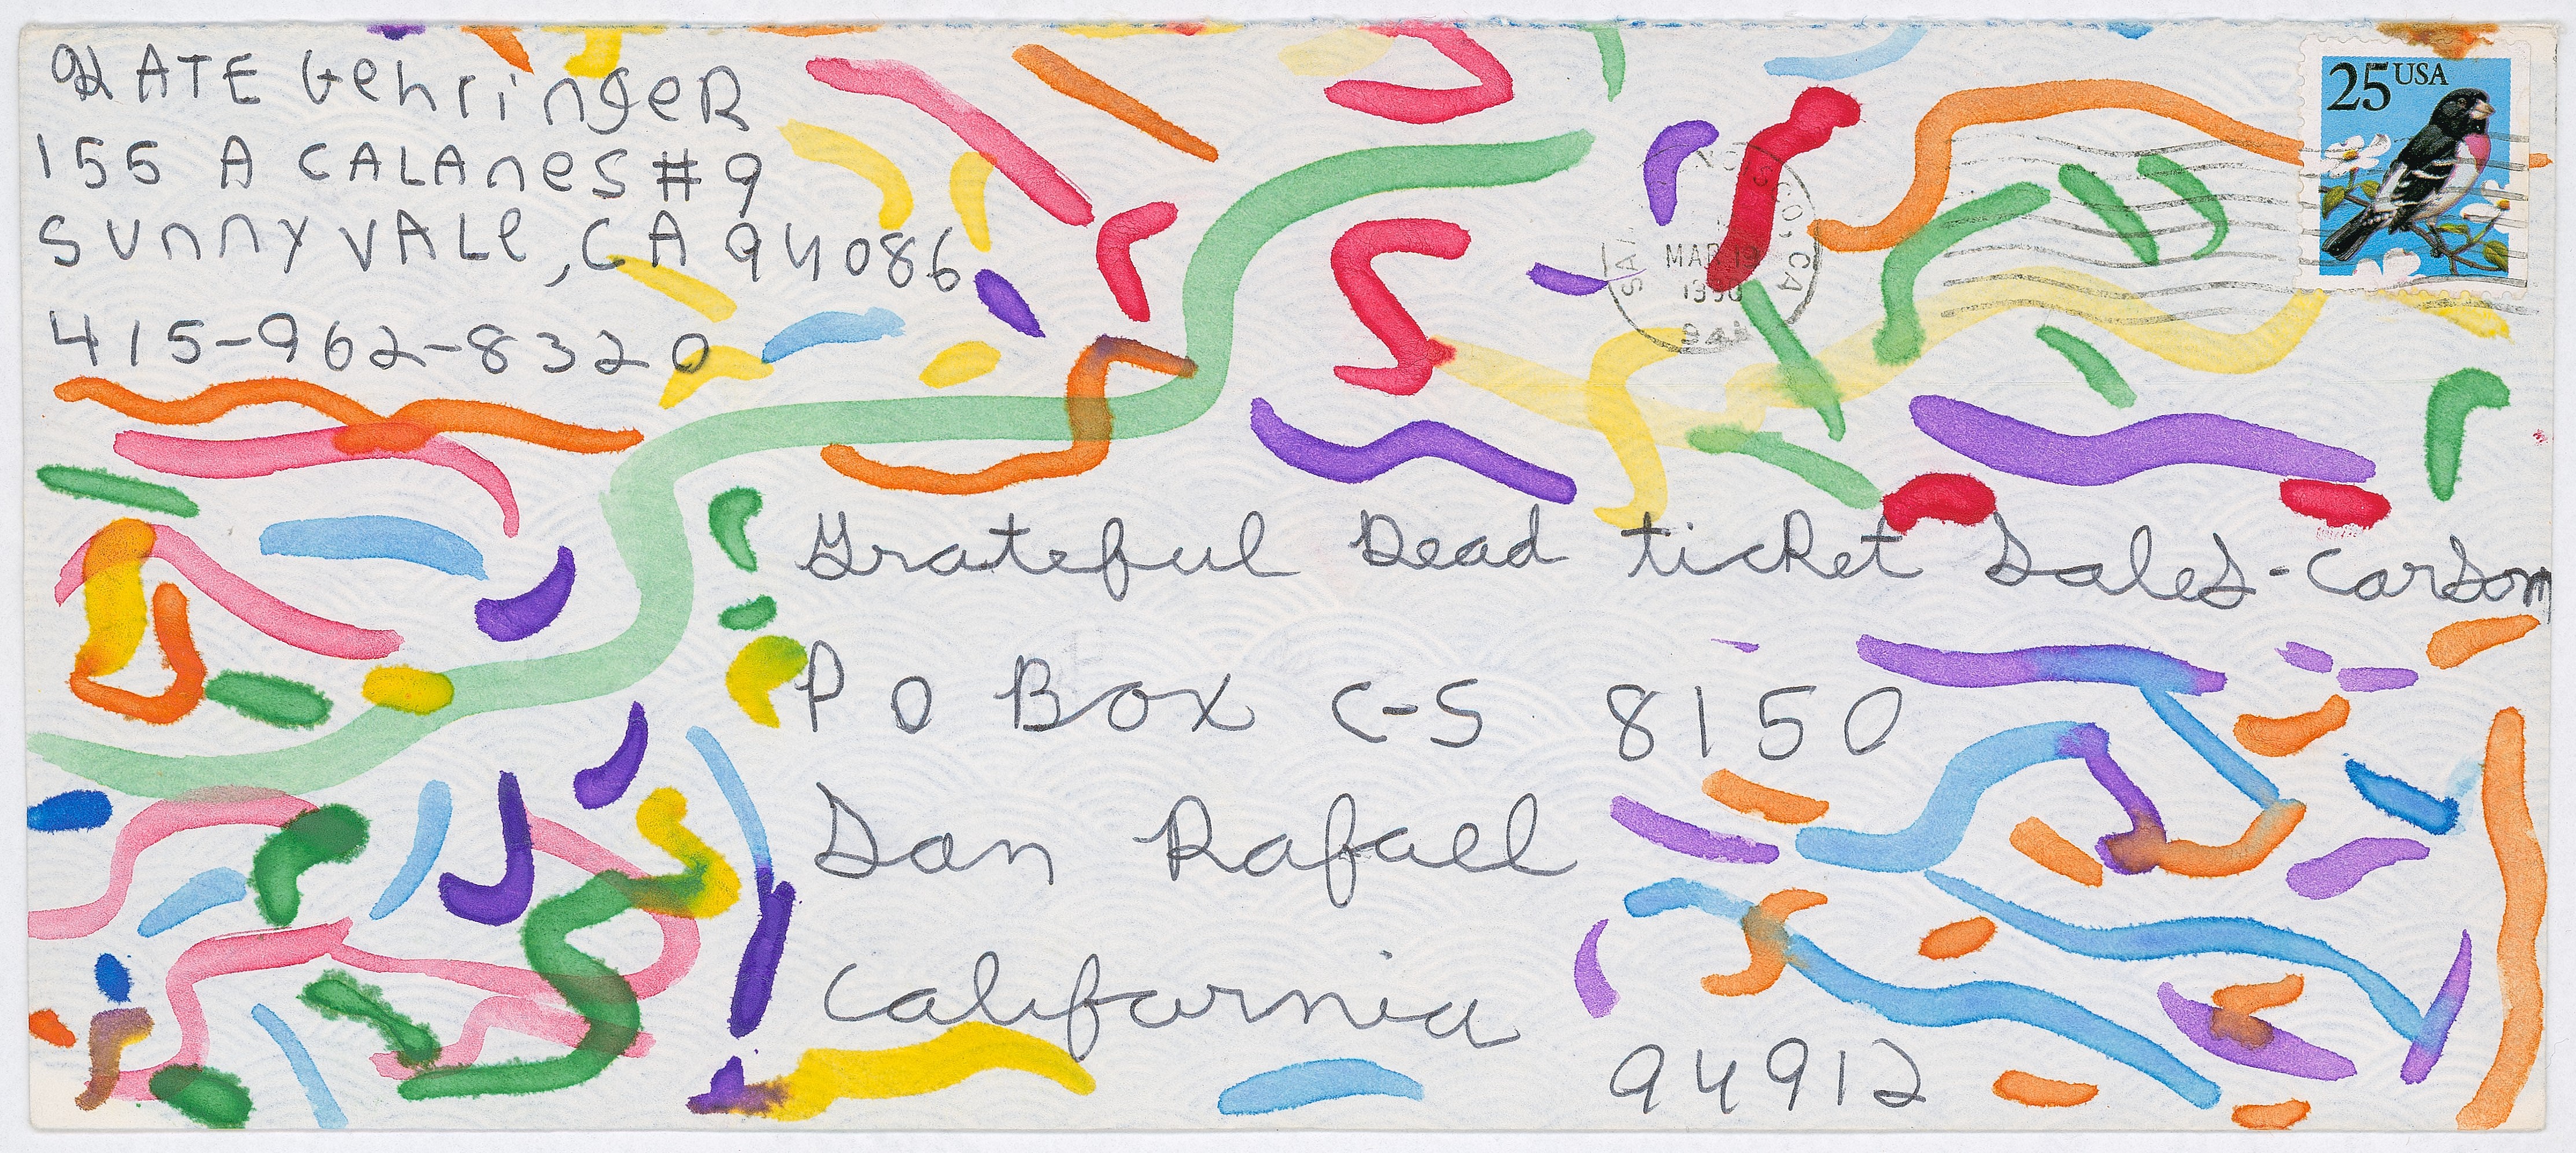 KATE GehringeR
155 A CALAnes #9
SunnyvALe, CA 94086
415-962-8320
25 USA
MAR 19
1990
Grateful Dead ticket Sales-Carson
P O Box C-S 8150
San Rafael
California
94912